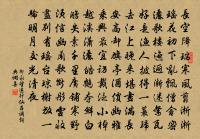 長空降瑞寒風剪淅淅
瑤花初下亂飄僧舍密
灑歌樓迤邐漸迷鴛瓦
好是漁人披得一蓑歸
去江上晚來堪畫滿長
安高卻旗亭酒價幽雅
乘興最宜訪戴泛小棹
越溪瀟灑皓鶴奪鮮白
鷴失素千里廣鋪寒野
須信幽蘭歌斷彤雲收
盡別有瑤臺瓊榭放一輪
明月交光清夜